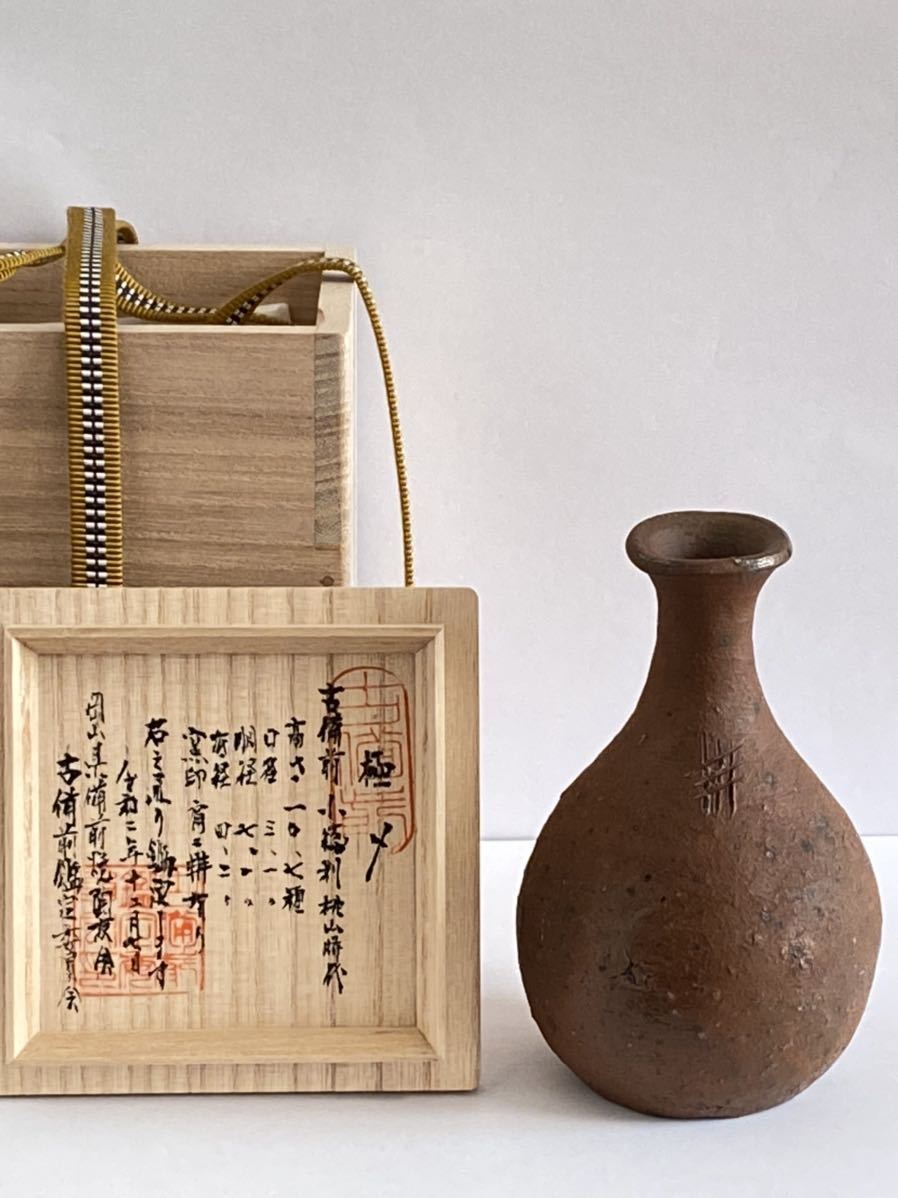 極〆
古備前 小徳利 桃山時代
高サ 一〇、七糎
口径 三、一〃
胴径 七、
底径 四、二〃
窯印 肩ニ
右之通り鑑定します
令和二年十二月七日
岡山県備前焼陶友会
古備前鑑定委員会